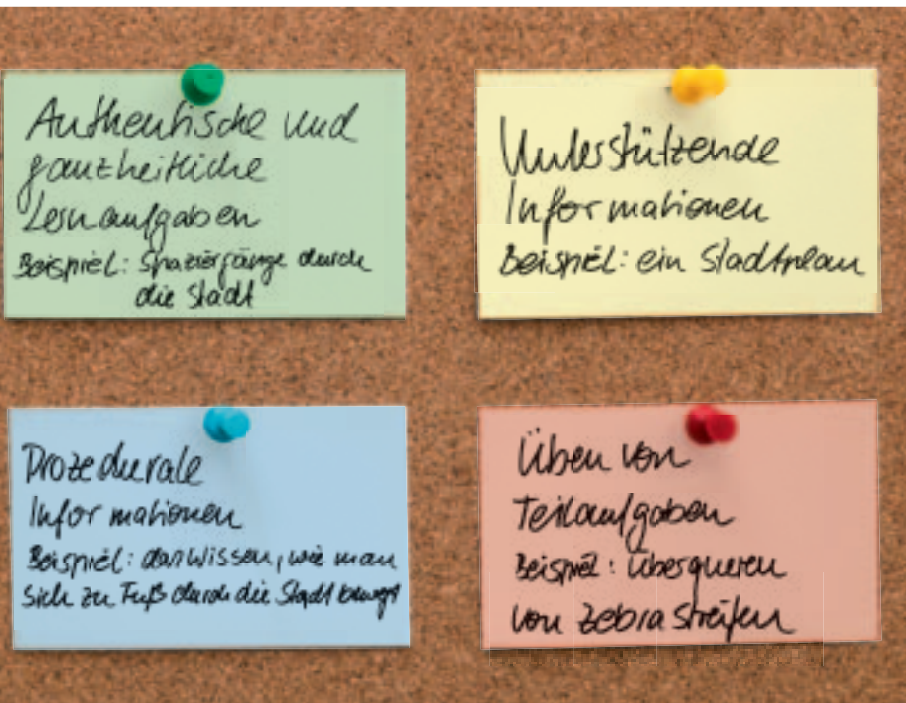 Authentische und
ganzheitliche
Lernaufgaben
Beispiel: Spaziergänge durch
die Stadt
Unterstützende
Informationen
Beispiel: ein Stadtplan
Prozedurale
Informationen
Beispiel: das Wissen, wie man
sich zu Fuß durch die Stadt bewegt
Üben von
Teilaufgaben
Beispiel: Überqueren
von Zebrastreifen